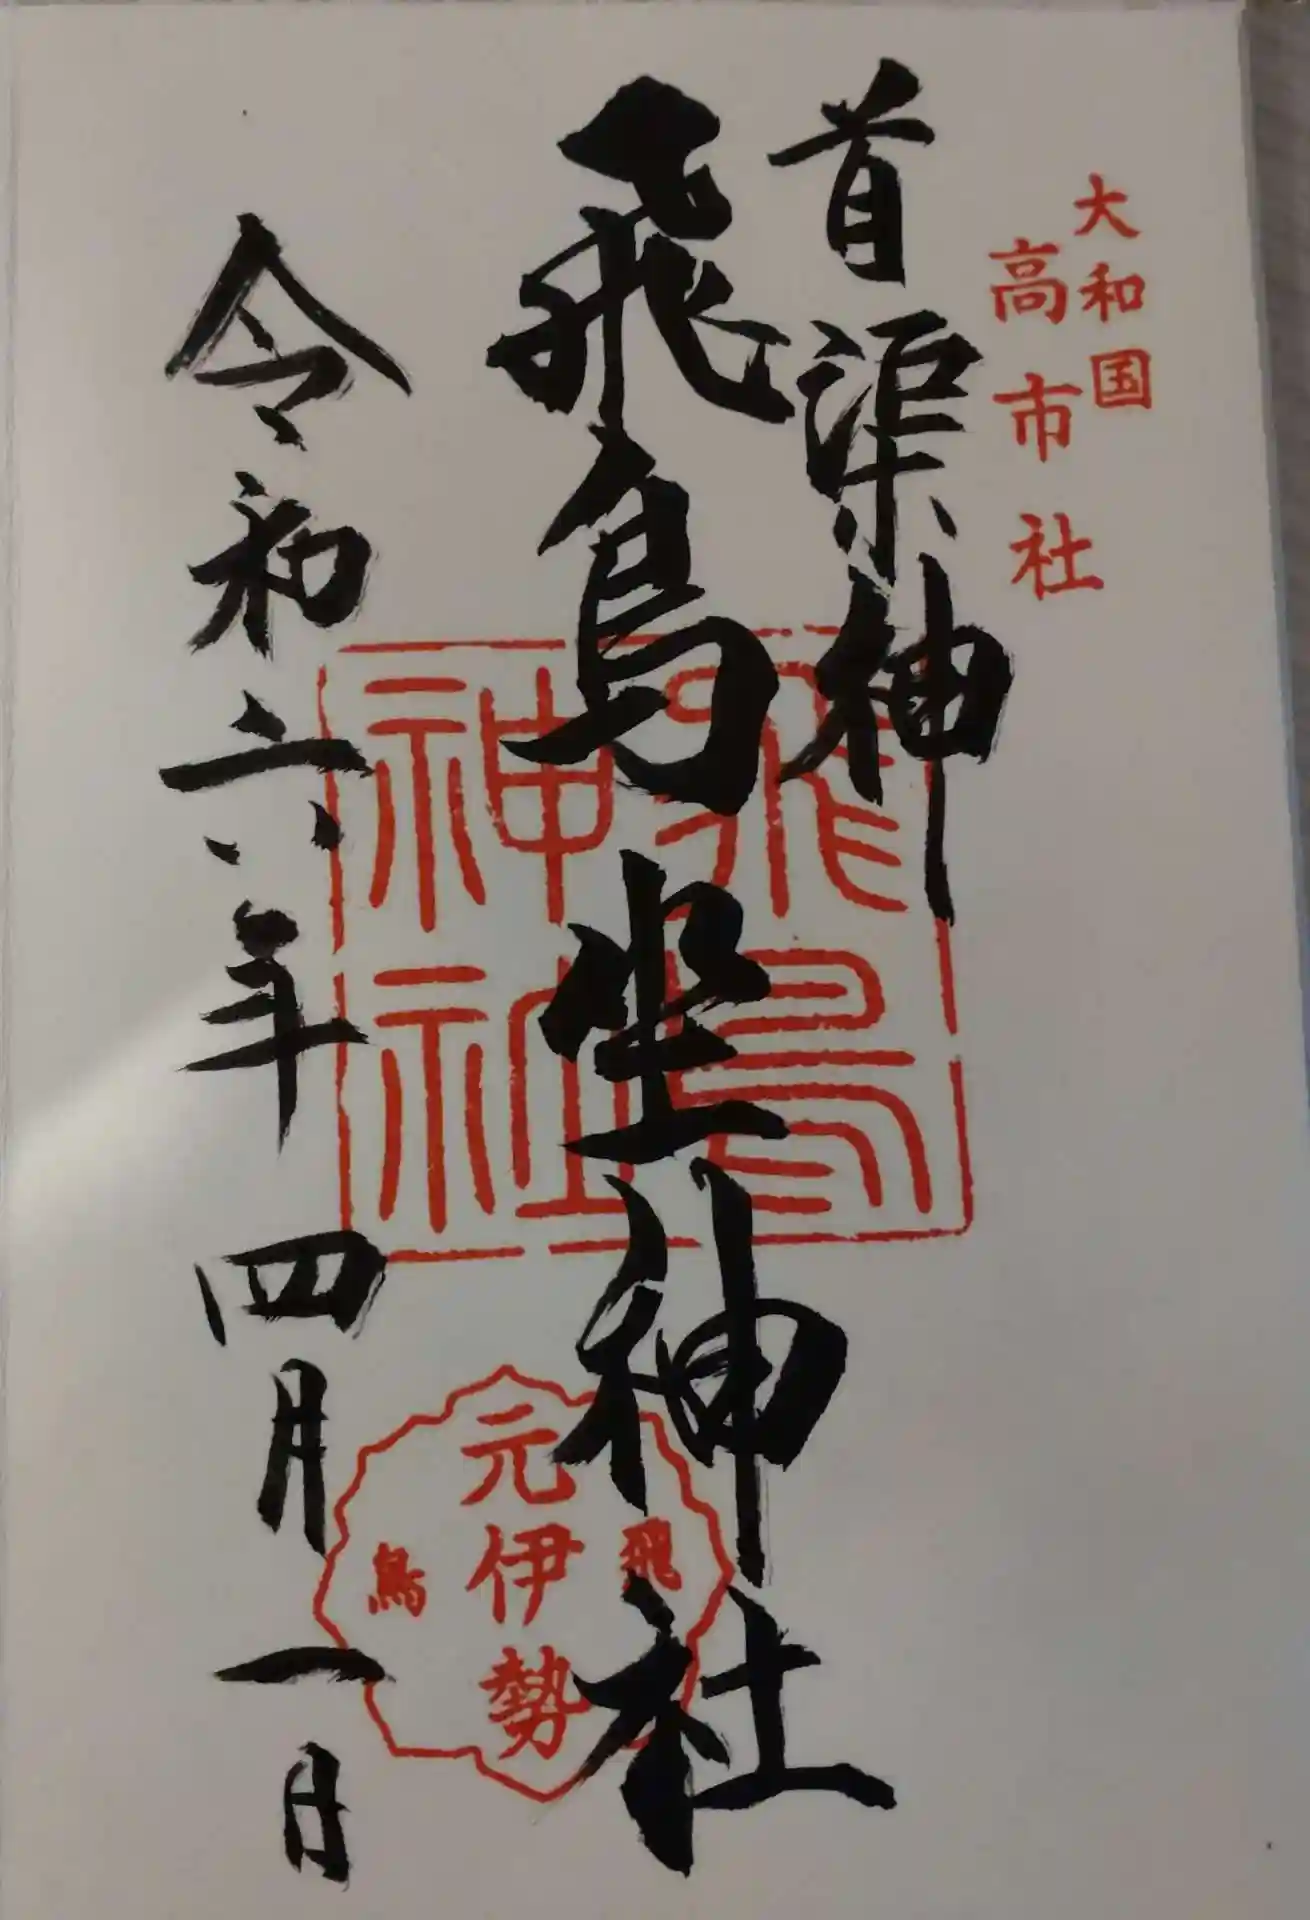 大和国
高市社
首渠神
飛鳥坐神社
飛鳥
神社
飛鳥
元伊勢
令和六年四月一日